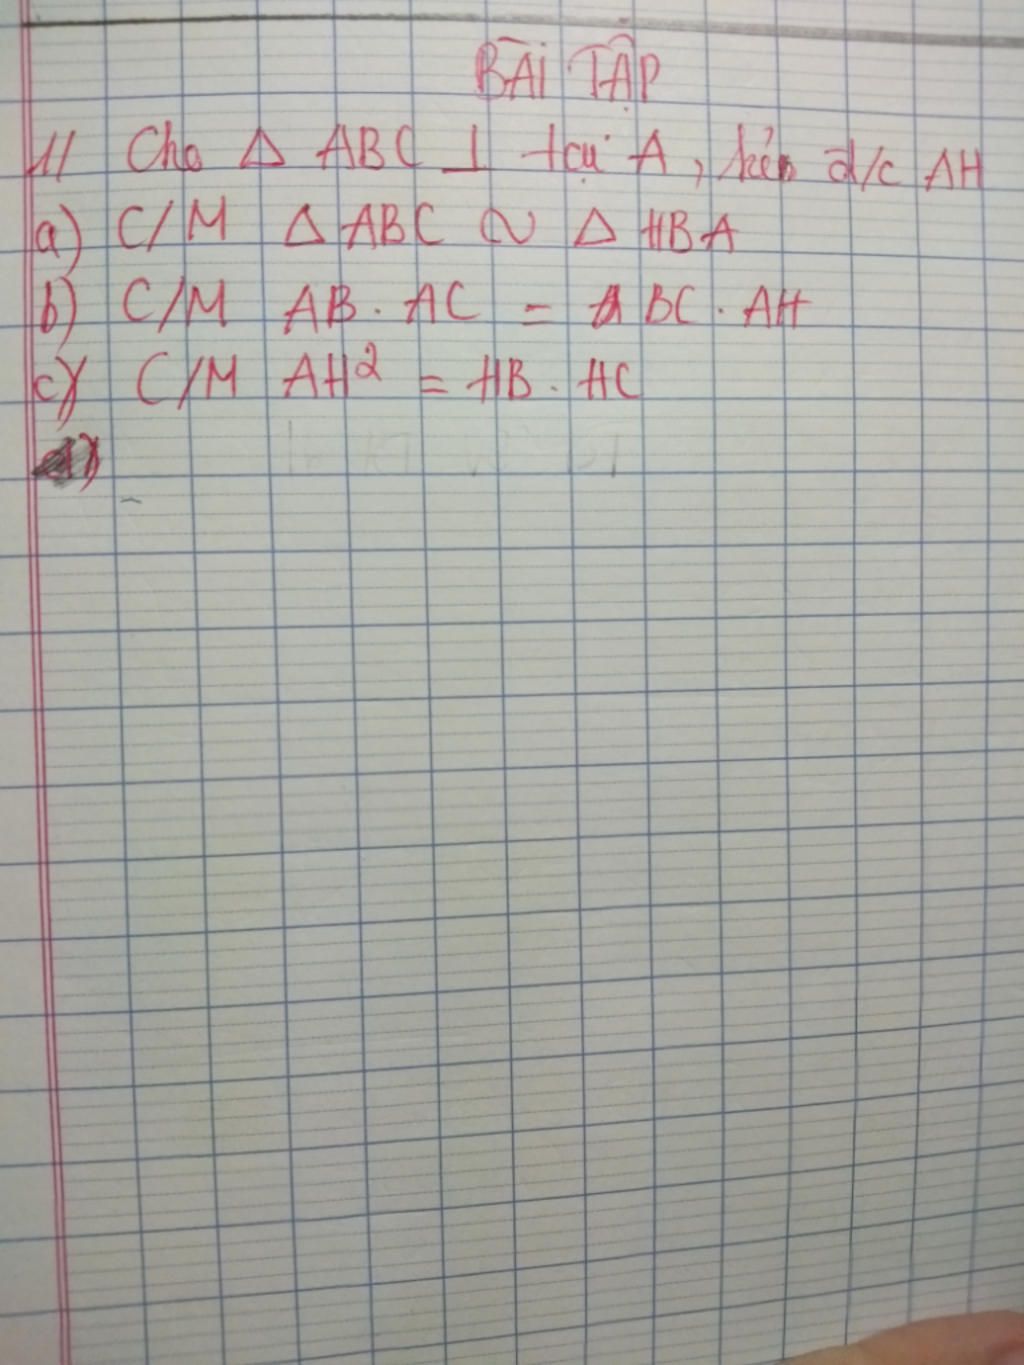 BÀI TẬP
1/ Cho Δ ABC ⊥ tại A, kẻ đ/c AH
a) C/M Δ ABC ∽ Δ HBA
b) C/M AB . AC = BC . AH
c) C/M AH² = HB . HC